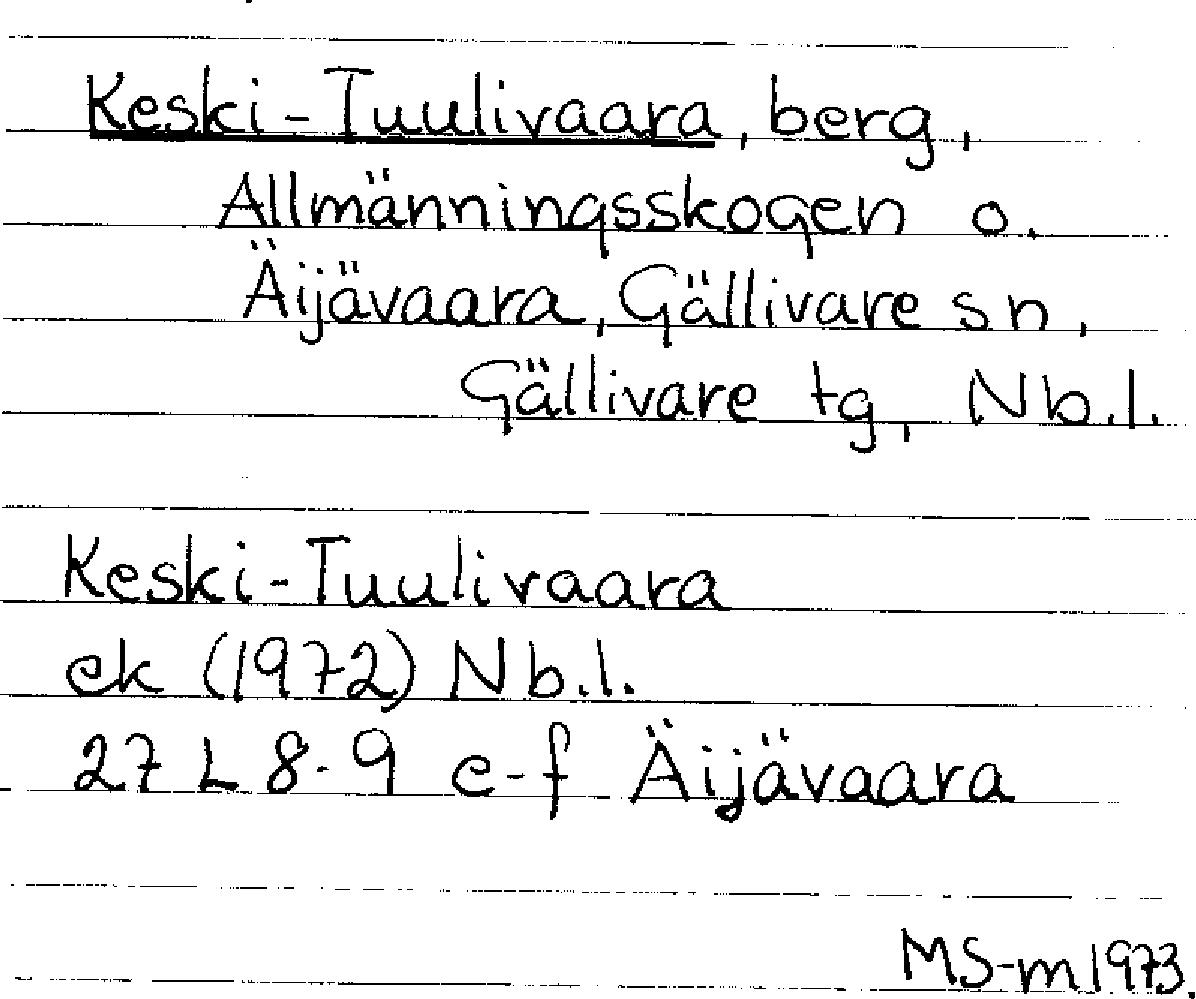 Keski-Tuulivaara, berg,
Allmänningsskogen o.
Äijävaara, Gällivare sn,
Gällivare tg, Nb.l.
Keski-Tuulivaara
ek (1972) Nb.l.
27 L 8-9 e-f Äijävaara
MS-m 1973.